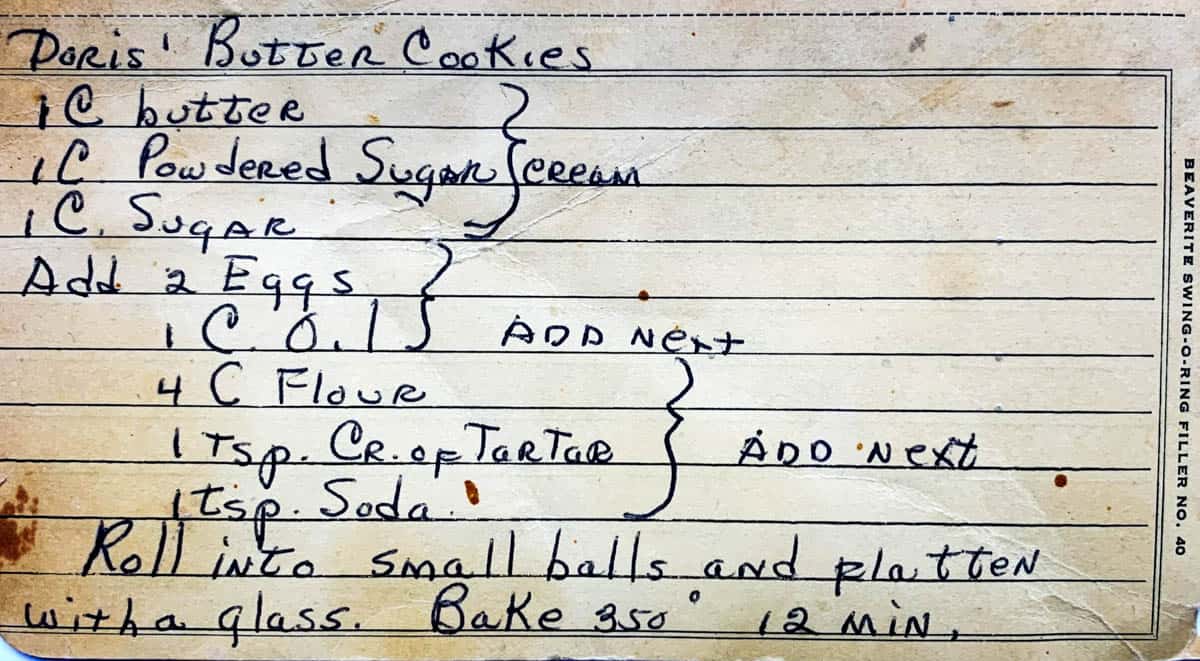 Doris' Butter Cookies
1 C butter
1 C Powdered Sugar } cream
1 C. Sugar
Add 2 Eggs
1 C. Oil } ADD Next
4 C Flour
1 Tsp. Cr. of TarTar } ADD Next
1 tsp. Soda.
Roll into small balls and platten
with a glass. Bake 350° 12 min.
BEAVERITE SWING-O-RING FILLER NO. 40